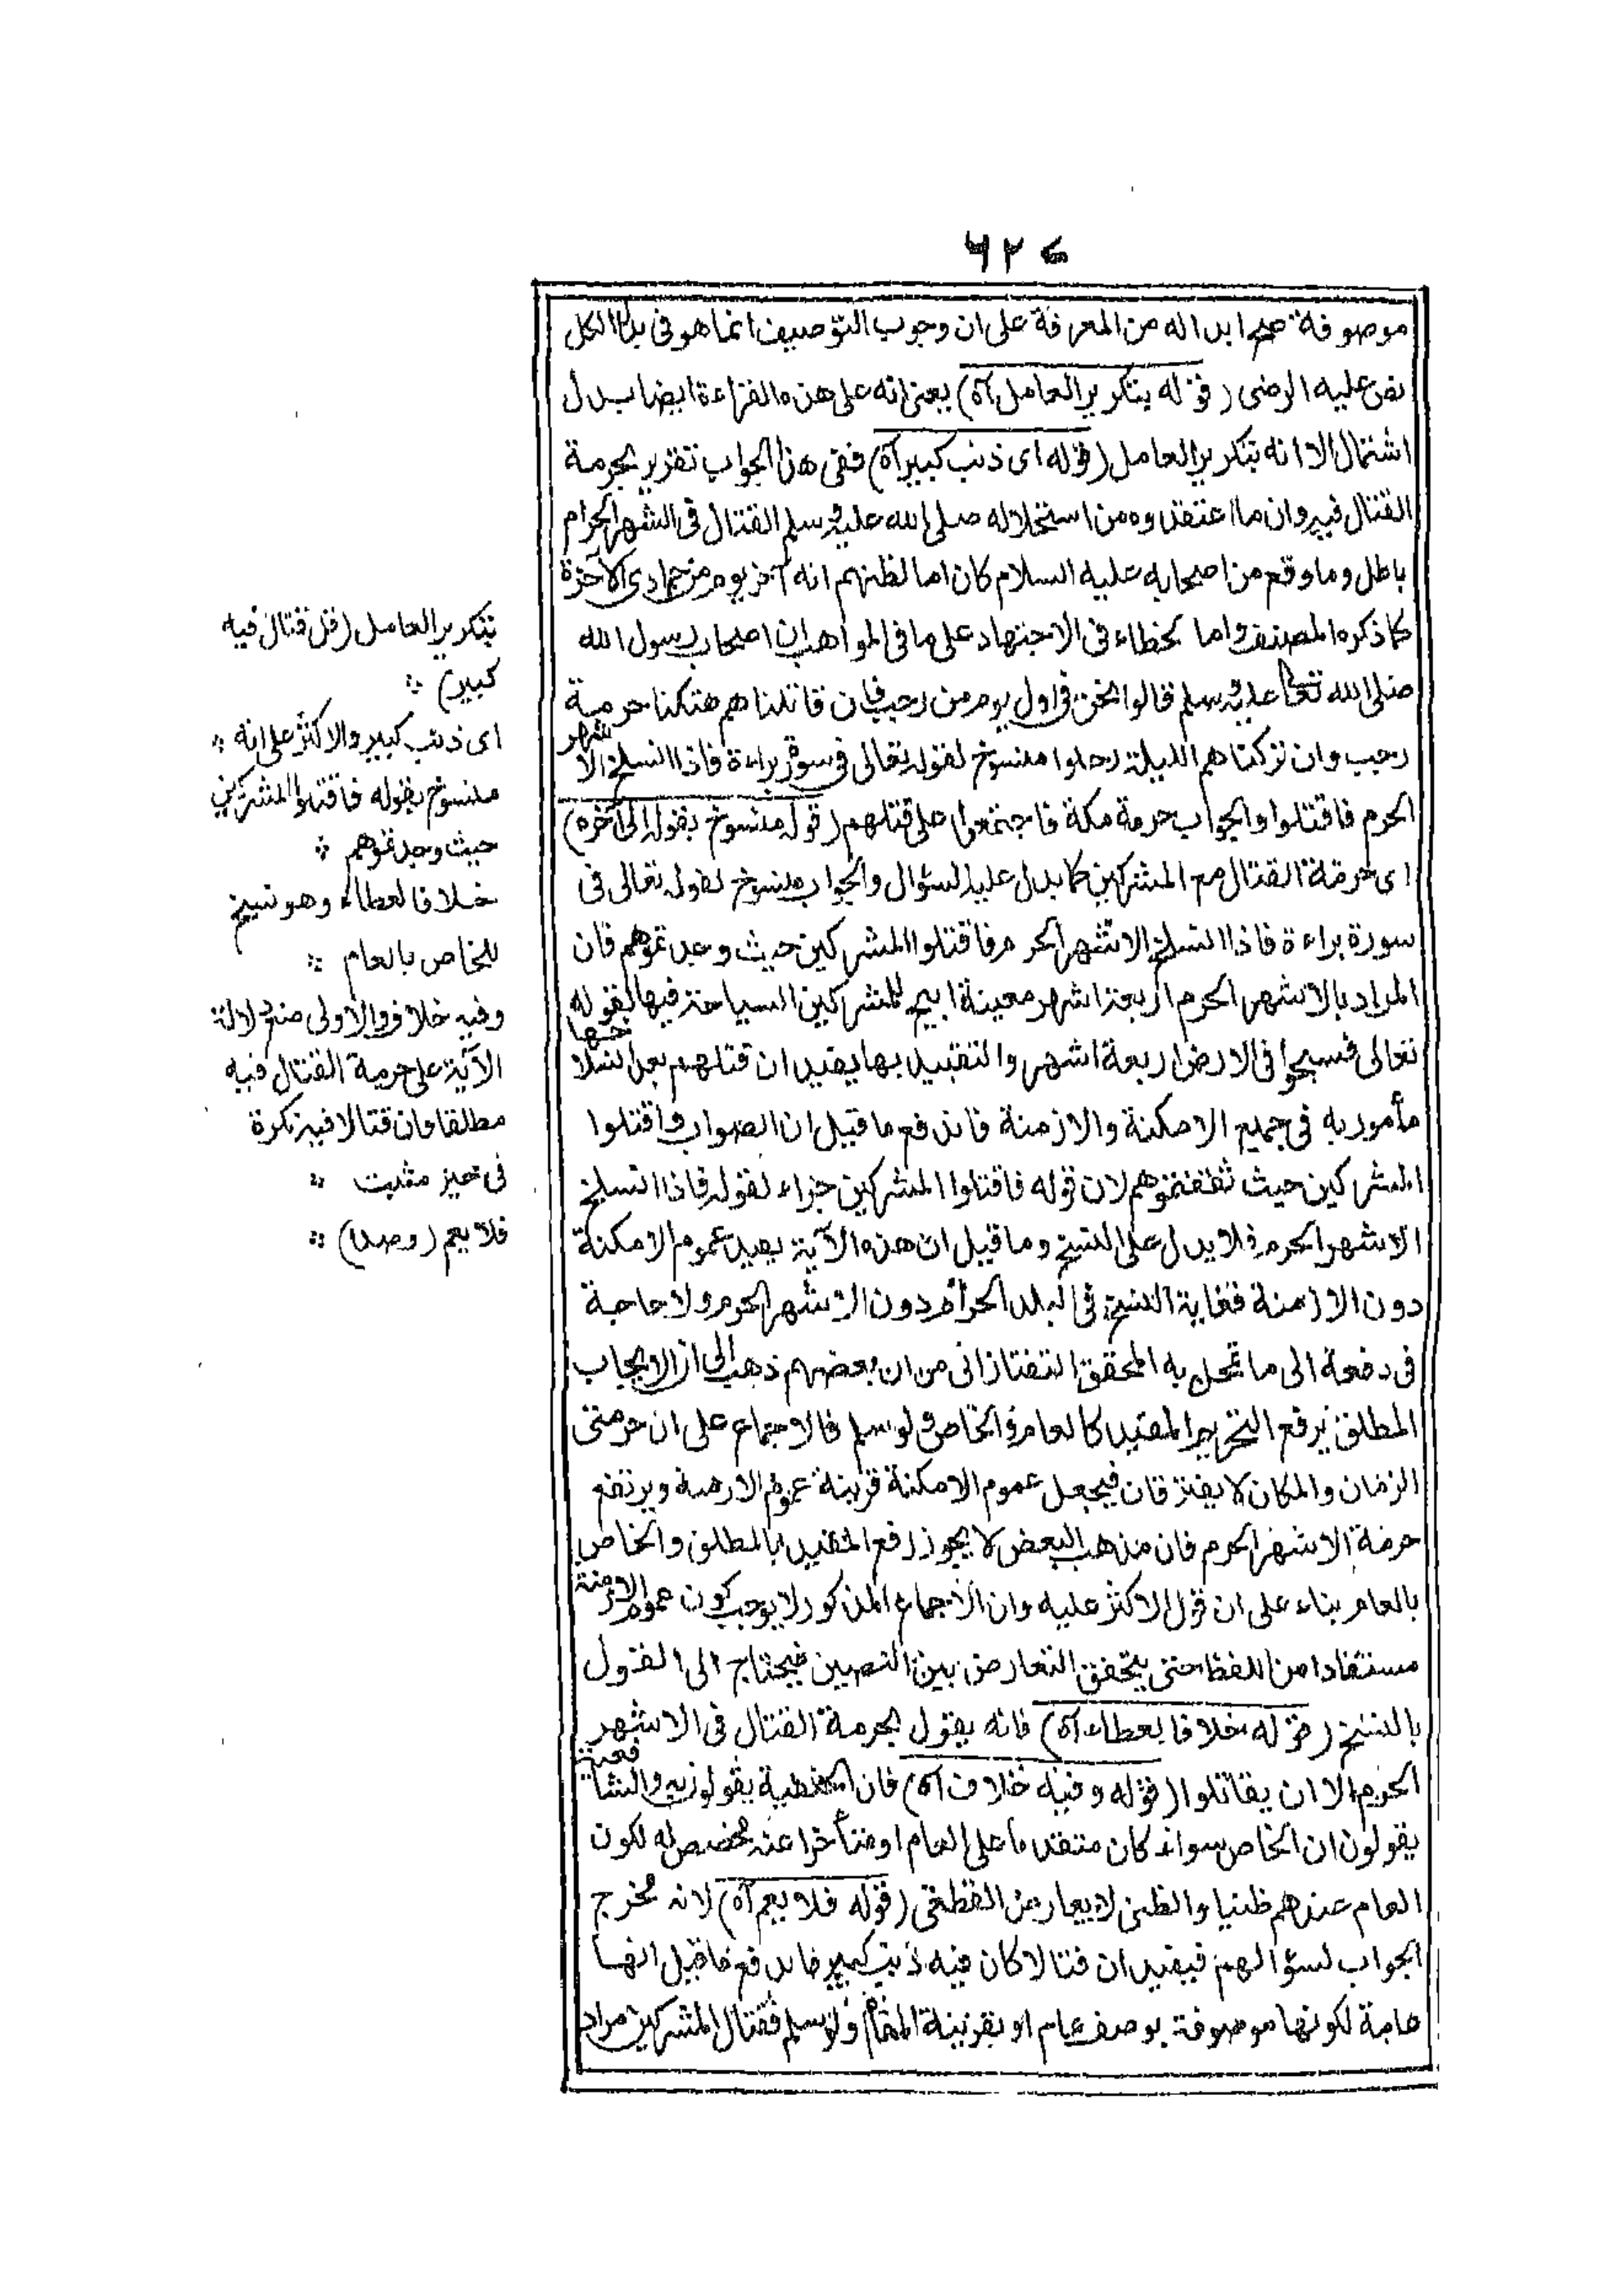 ٦٢٥
موصوفة صح ابداله من المعرفة على ان وجوب التوصيف انما هو فى بدل الكل
نص عليه الرضى (قوله بتكرير العامل آه) يعنى انه على هذه القراءة ايضا بدل
اشتمال الا انه بتكرير العامل (قوله اى ذنب كبير آه) ففى هذا الجواب تقرير لحرمة
القتال فيه وان ما اعتقدوه من استحلاله صلى الله عليه وسلم القتال فى الشهر الحرام
باطل وما وقع من اصحابه عليه السلام كان اما لظنهم انه آخر يوم من جمادى الآخرة
كما ذكره المصنف واما لخطاء فى الاجتهاد على ما فى المواهب ان اصحاب رسول الله
صلى الله تعالى عليه وسلم قالوا نحن فى اول يوم من رجب فان قاتلناهم هتكنا حرمة شهر
رجب وان تركناهم الليلة دخلوا منسوخ لقوله تعالى فى سورة براءة فاذا انسلخ الا
الحرم فاقتلوا والجواب حرمة مكة فاجتمعوا على قتلهم (قوله منسوخ بقوله الى آخره)
اى حرمة القتال مع المشركين كما يدل عليه السؤال والجواب منسوخ لقوله تعالى فى
سورة براءة فاذا انسلخ الاشهر الحرم فاقتلوا المشركين حيث وجدتموهم فان
المراد بالاشهر الحرم اربعة اشهر معينة ابيح للمشركين السياحة فيها لقوله
تعالى فسيحوا فى الارض اربعة اشهر والتقييد بها يفيد ان قتلهم بعد انسلاخها
مأمور به فى جميع الامكنة والازمنة فاندفع ما قيل ان الصواب واقتلوا
المشركين حيث ثقفتموهم لان قوله فاقتلوا المشركين جزاء لقوله فاذا انسلخ
الاشهر الحرم فلا يدل على النسخ وما قيل ان هذه الآية يفيد عموم الامكنة
دون الازمنة فغاية النسخ فى البلد الحرام دون الاشهر الحرم ولا حاجة
فى دفعه الى ما تمحل به المحقق التفتازانى من ان بعضهم ذهب الى ان الايجاب
المطلق يرفع التحريم المقيد كالعام والخاص ولو سلم فالاجماع على ان حرمتى
الزمان والمكان لا يفترقان فيجعل عموم الامكنة قرينة عموم الازمنة ويرتفع
حرمة الاشهر الحرم فان مذهب البعض لا يجوز رفع المقيد بالمطلق والخاص
بالعام بناء على ان قول الاكثر عليه وان الاجماع المذكور لا يوجب كون عموم الازمنة
مستفادا من اللفظ حتى يتحقق التعارض بين النصين فيحتاج الى القول
بالنسخ (قوله خلافا لعطاء آه) فانه يقول بحرمة القتال فى الاشهر
الحرم الا ان يقاتلوا (قوله وفيه خلاف آه) فان الحنفية يقولون به والشافعية
يقولون ان الخاص سواء كان متقدما على العام او متأخرا عنه مخصص له لكون
العام عندهم ظنيا والظنى لا يعارض القطعى (قوله فلا يعم آه) لانه مخرج
الجواب لسؤالهم فيفيد ان قتالا كان فيه ذنب كبير فاندفع ما قيل انها
عامة لكونها موصوفة بوصف عام او بقرينة المقام ولو سلم فقتال المشركين مراد
بتكرير العامل (قل قتال فيه
كبير)
اى ذنب كبير والاكثر على انه
منسوخ بقوله فاقتلوا المشركين
حيث وجدتموهم
خلافا لعطاء وهو نسخ
للخاص بالعام
وفيه خلاف والاولى منع دلالة
الآية على حرمة القتال فيه
مطلقا فان قتالا فيه نكرة
فى حيز مثبت
فلا يعم (وصد)